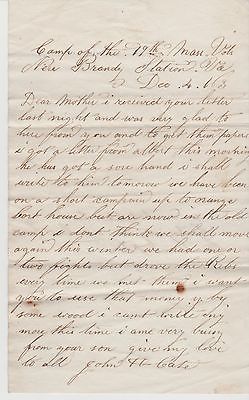 Camp of the 19th Mass Vols
Near Brandy Station Va
Dec 4. 63
Dear Mother i recieved your letter
last night and was very glad to
here from you and to get them papers
i got a letter from Albert this morning
he has got a sore hand i shall
write to him tomorow we have been
on a short campain up to orange
Cort house but are now in the old
camp i dont think we shall move
again this winter we had one or
two fights but drove the Rebs
every time we met them i want
you to use that money & by
some wood i cant write any
more this time i am very busy
from your son give my love
to all John H